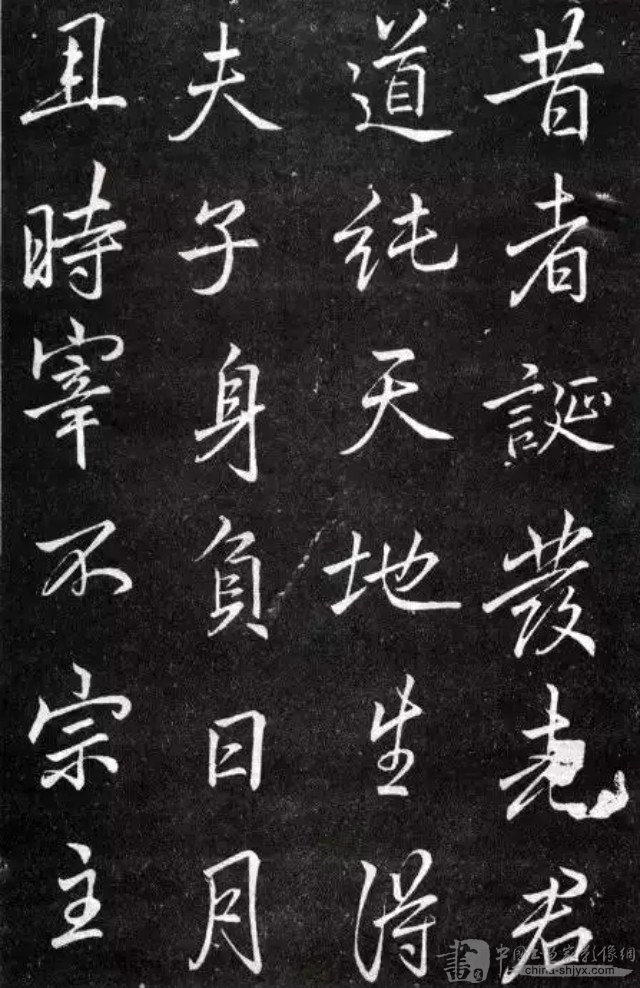 昔者誕發老君
道純天地生得
夫子身負日月
且時宰不宗主
china-shjyx.com